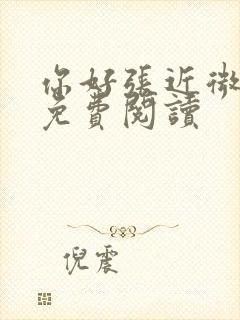 你好張近微
免費閱讀
倪震